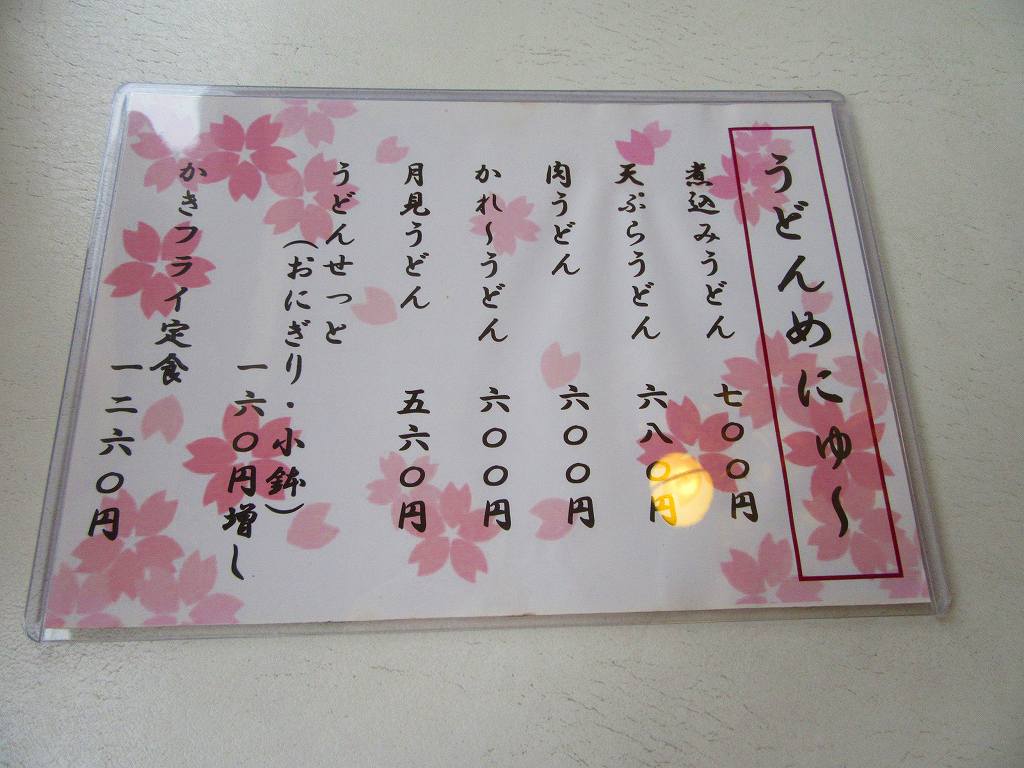 うどんめにゅ〜
煮込みうどん 七〇〇円
天ぷらうどん 六八〇円
肉うどん 六〇〇円
かれ〜うどん 六〇〇円
月見うどん 五六〇円
うどんせっと
（おにぎり・小鉢）
一六〇円増し
かきフライ定食
一二六〇円